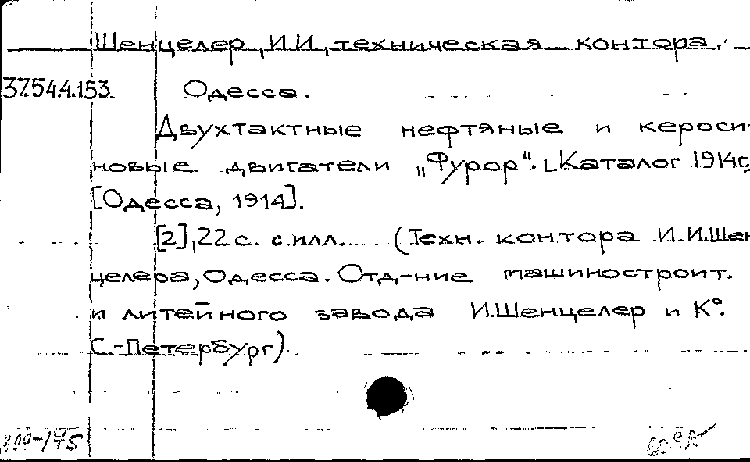 Шенцелер, И.И., техническая контора.
37.544.153. Одесса.
Двухтактные нефтяные и кероси-
новые двигатели „Фурор". [Каталог 1914г.
[Одесса, 1914].
[2], 22 с. с илл. (Техн. контора И.И.Шен-
целера, Одесса. Отд-ние машиностроит.
и литейного завода И.Шенцелер и К°.
С.-Петербург)